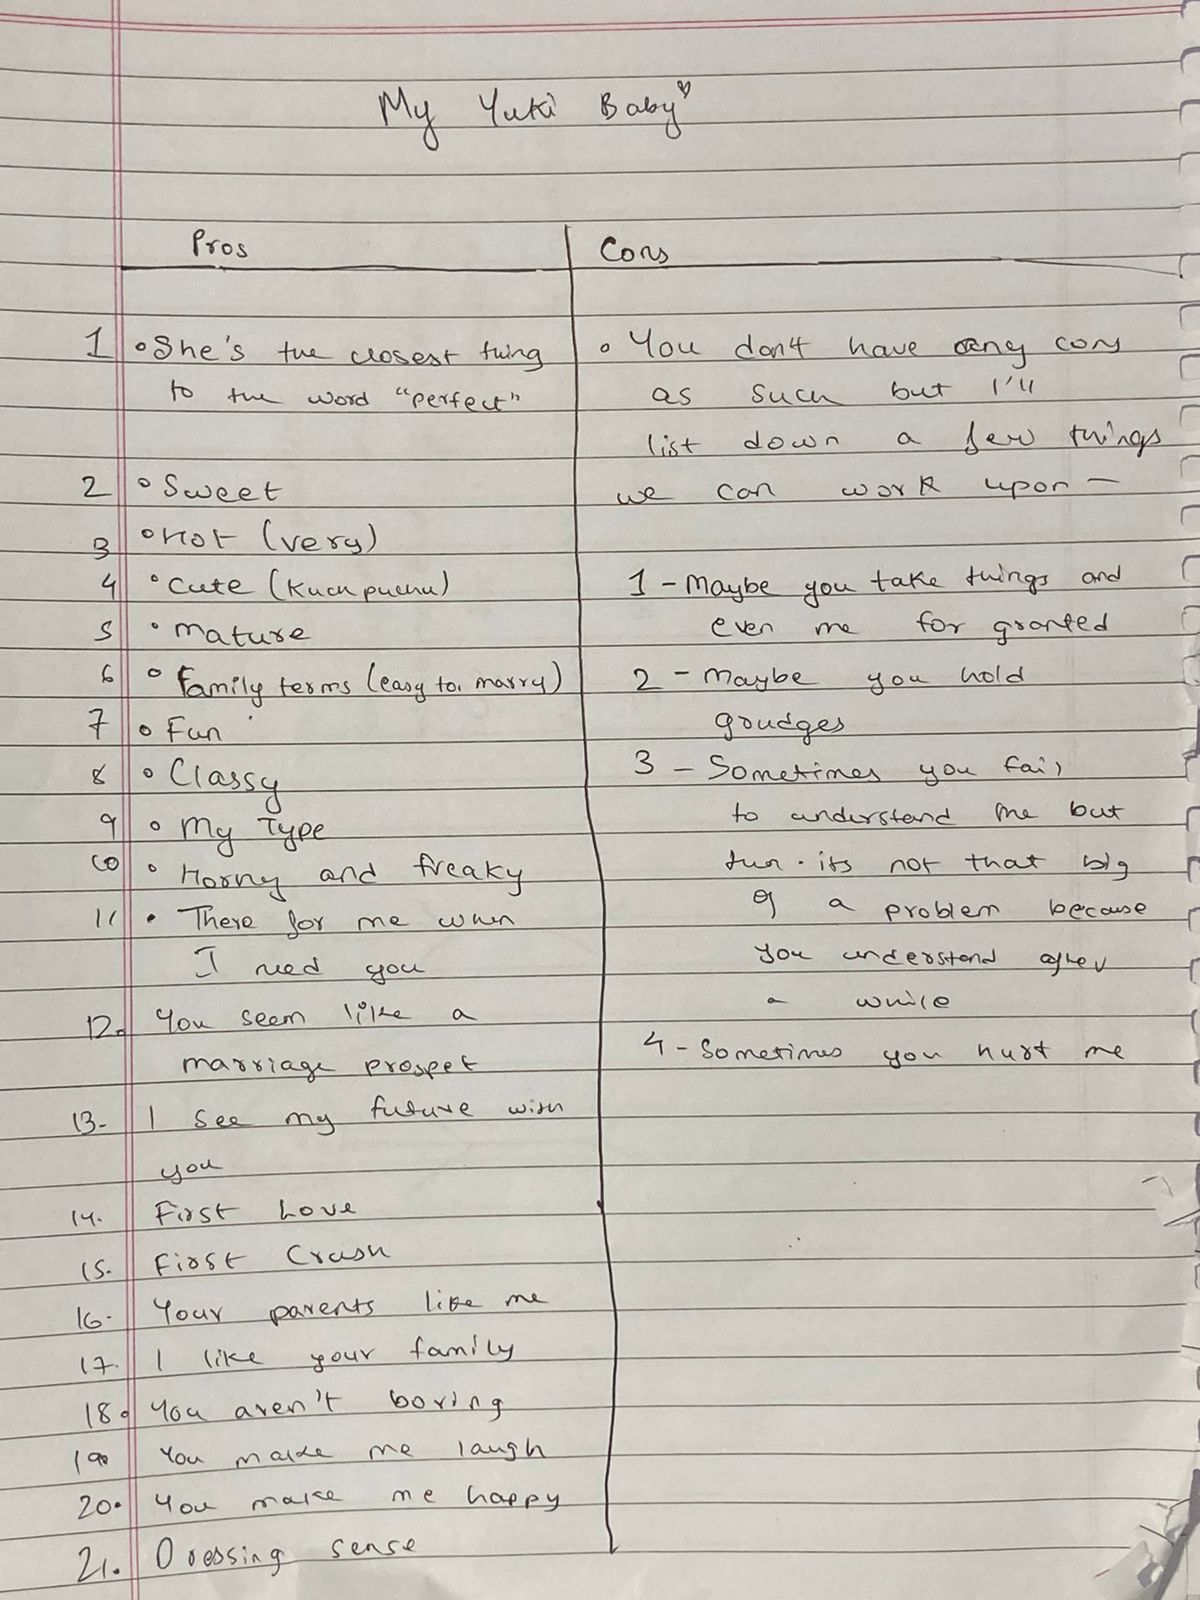 My Yuki Baby
Pros
1 • She's the closest thing
to the word "perfect"
2 • Sweet
3 • Hot (very)
4 • Cute (Kuchpuchu)
5 • Mature
6 • Family terms (easy to marry)
7 • Fun
8 • Classy
9 • My Type
10 • Horny and freaky
11 • There for me when
I need you
12. You seem like a
marriage prospet
13- I see my future with
you
14. First Love
15. First Crush
16- Your parents like me
17. I like your family
18. You aren't boring
19. You make me laugh
20. You make me happy
21. Dressing sense
Cons
• You don't have any cons
as such but I'll
list down a few things
we can work upon —
1 - Maybe you take things and
even me for granted
2 - Maybe you hold
grudges
3 - Sometimes you fail
to understand me but
its not that big
of a problem because
you understand after
a while
4 - Sometimes you hurt me